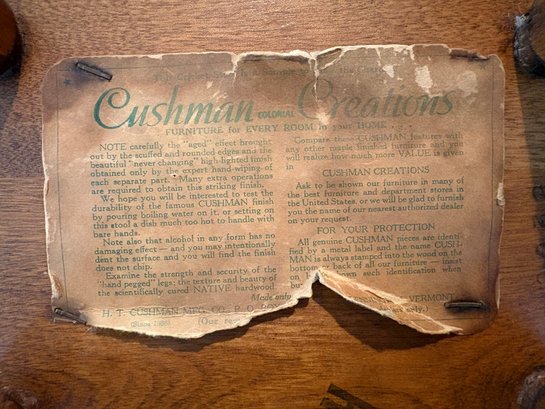 Cushman COLONIAL Creations
FURNITURE for EVERY ROOM in your HOME
NOTE carefully the "aged" effect brought
out by the scuffed and rounded edges and the
beautiful "never changing" high-lighted finish
obtained only by the expert hand-wiping of
each separate part. Many extra operations
are required to obtain this striking finish.
We hope you will be interested to test the
durability of the famous CUSHMAN finish
by pouring boiling water on it, or setting on
this stool a dish much too hot to handle with
bare hands.
Note also that alcohol in any form has no
damaging effect — and you may intentionally
dent the surface and you will find the finish
does not chip.
Examine the strength and security of the
"hand pegged" legs; the texture and beauty of
the scientifically cured NATIVE hardwood.
Compare these CUSHMAN features with
any other maple finished furniture and you
will realize how much more VALUE is given
in
CUSHMAN CREATIONS
Ask to be shown our furniture in many of
the best furniture and department stores in
the United States, or we will be glad to furnish
you the name of our nearest authorized dealer
on your request.
FOR YOUR PROTECTION
All genuine CUSHMAN pieces are identi-
fied by a metal label and the name CUSH-
MAN is always stamped into the wood on the
bottom or back of all our furniture — insist
on being shown such identification when
Made only
H. T. CUSHMAN MFG. CO. VERMONT
(Since 1886) (Our